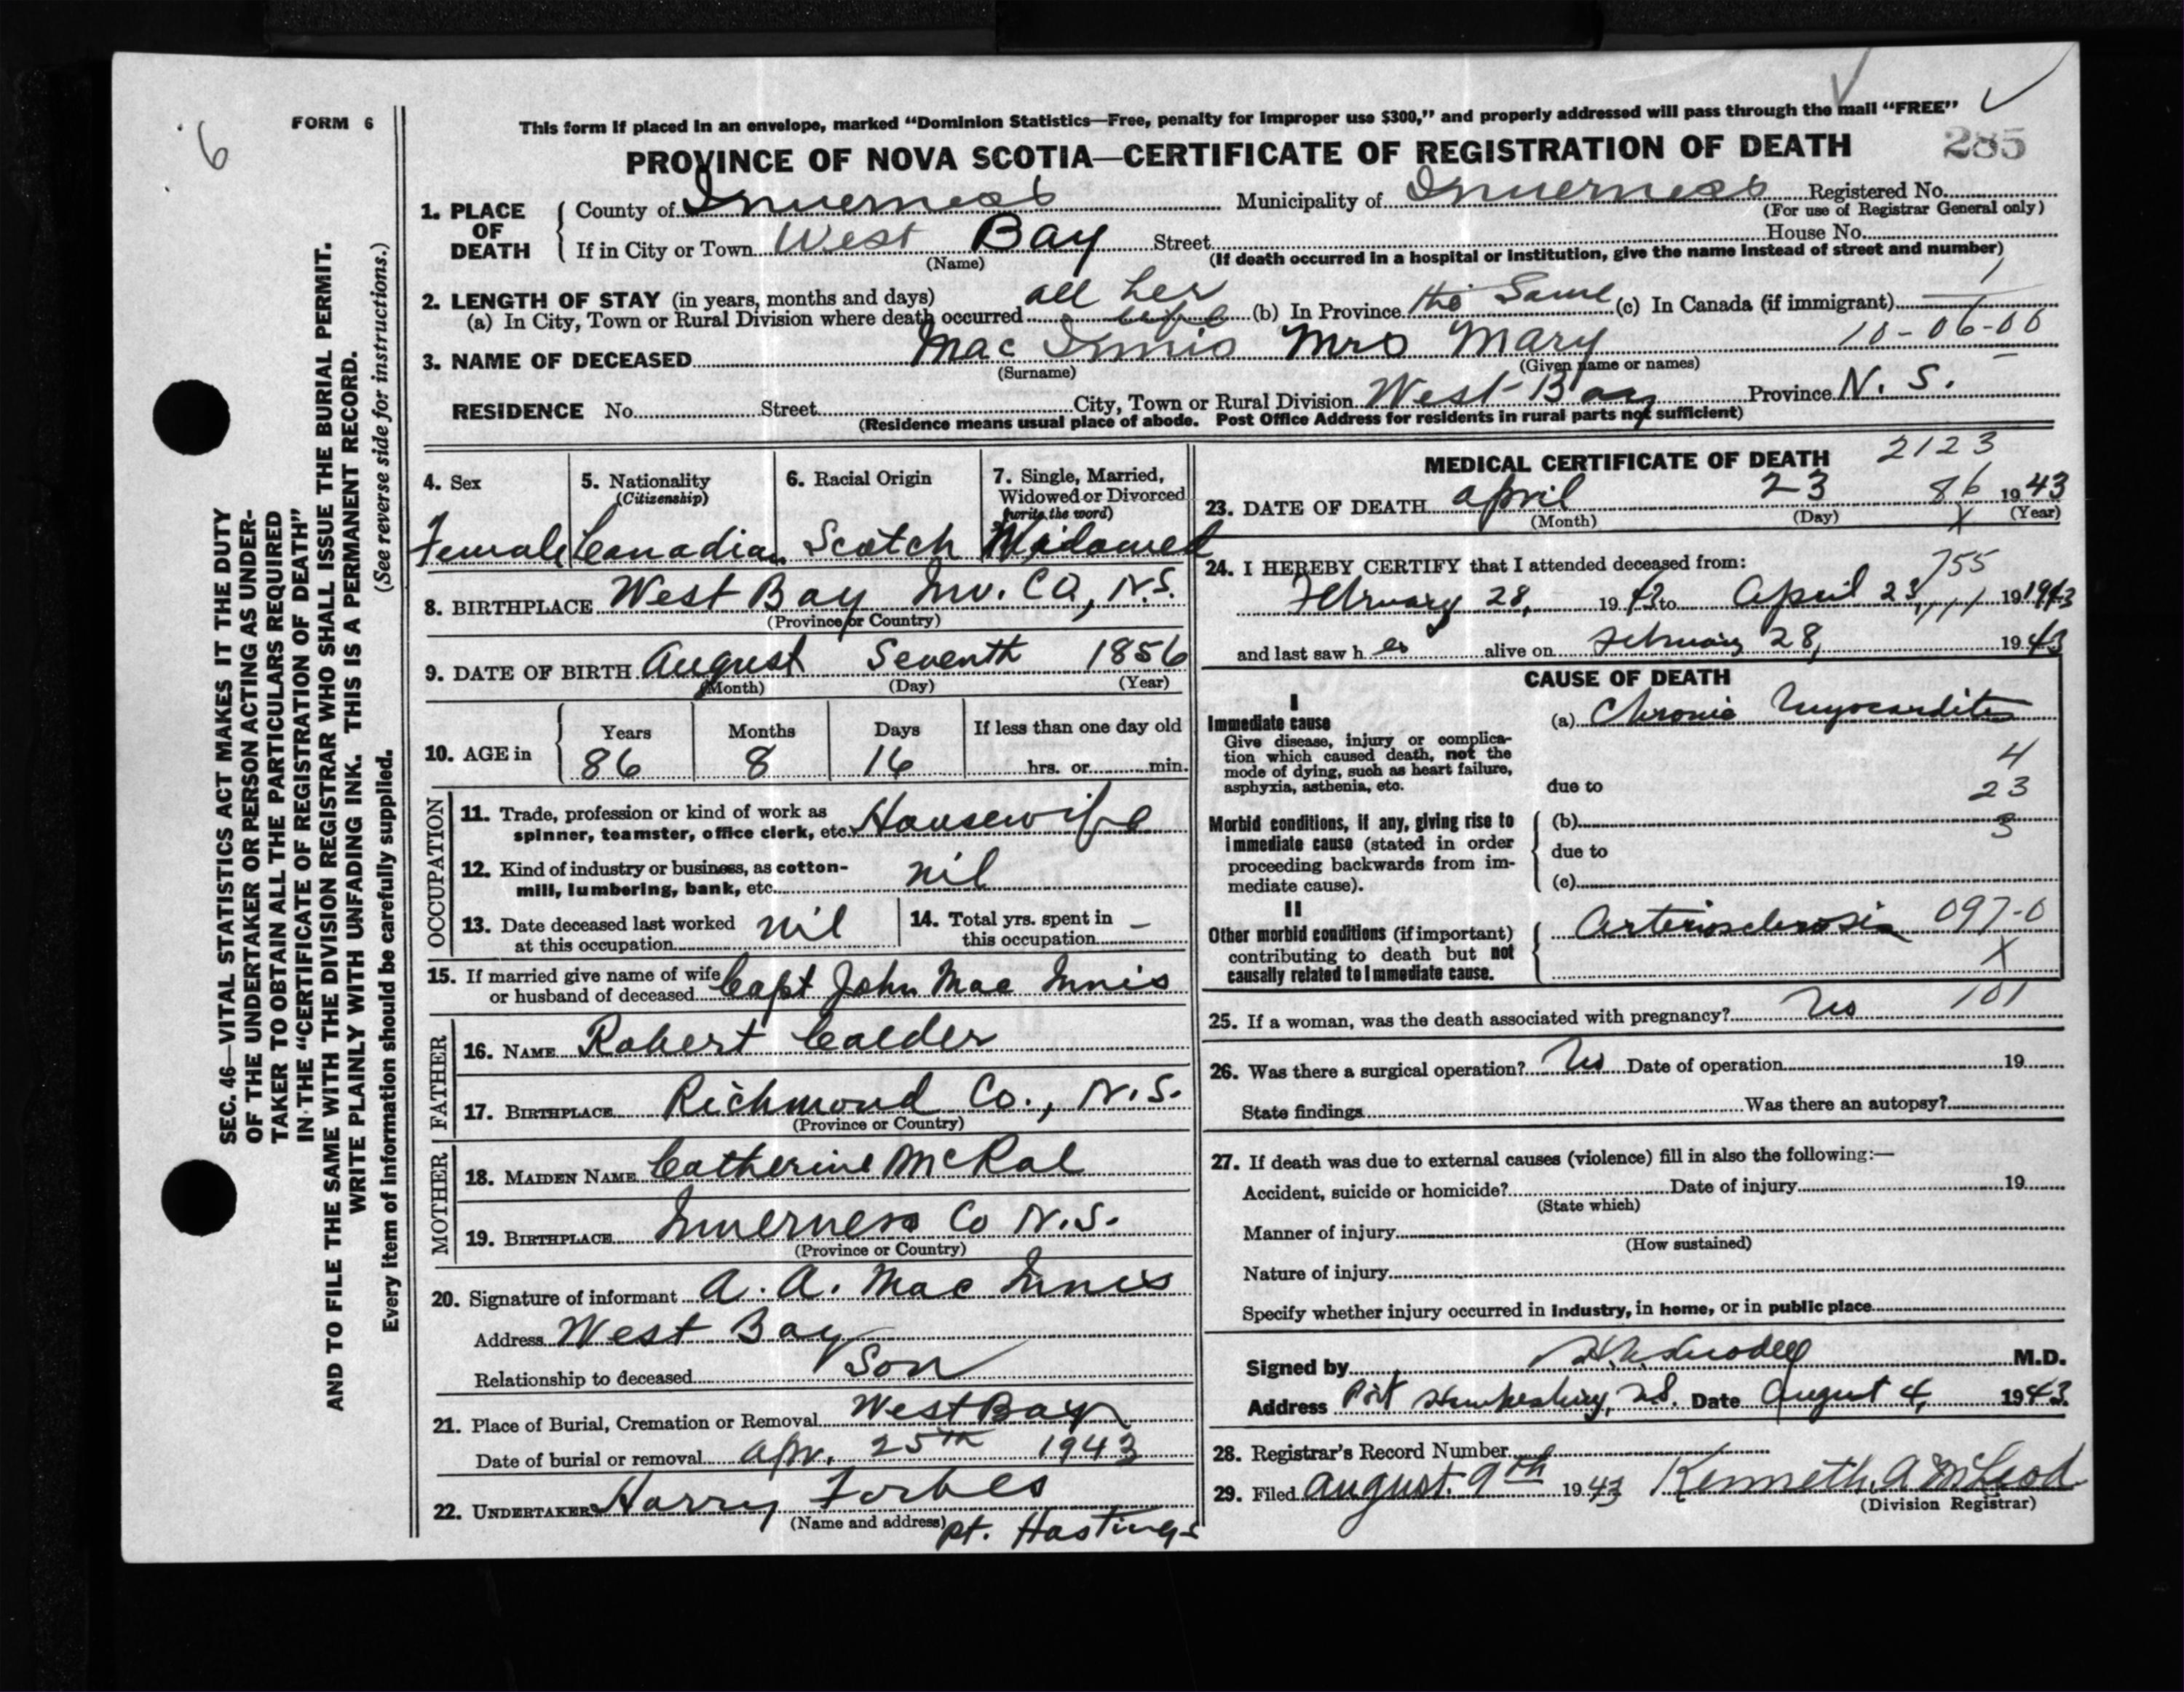 6
FORM 6
This form if placed in an envelope, marked "Dominion Statistics—Free, penalty for improper use $300," and properly addressed will pass through the mail "FREE"
PROVINCE OF NOVA SCOTIA—CERTIFICATE OF REGISTRATION OF DEATH
285
1. PLACE OF DEATH
County of Inverness Municipality of Inverness Registered No.
(For use of Registrar General only)
If in City or Town West Bay Street House No.
(Name) (If death occurred in a hospital or institution, give the name instead of street and number)
2. LENGTH OF STAY (in years, months and days)
(a) In City, Town or Rural Division where death occurred all her life (b) In Province the Same (c) In Canada (if immigrant)
3. NAME OF DECEASED Mac Innis Mrs Mary 10-06-00
(Surname) (Given name or names)
RESIDENCE No. Street City, Town or Rural Division West Bay Province N. S.
(Residence means usual place of abode. Post Office Address for residents in rural parts not sufficient)
4. Sex Female
5. Nationality (Citizenship) Canadian
6. Racial Origin Scotch
7. Single, Married, Widowed or Divorced (write the word) Widowed
8. BIRTHPLACE West Bay Inv. Co, N.S.
(Province or Country)
9. DATE OF BIRTH August Seventh 1856
(Month) (Day) (Year)
10. AGE in
Years Months Days If less than one day old
86 8 16 hrs. or min.
OCCUPATION
11. Trade, profession or kind of work as
spinner, teamster, office clerk, etc. Housewife
12. Kind of industry or business, as cotton-
mill, lumbering, bank, etc. nil
13. Date deceased last worked
at this occupation nil
14. Total yrs. spent in
this occupation –
15. If married give name of wife
or husband of deceased Capt John Mac Innis
FATHER
16. NAME Robert Calder
17. BIRTHPLACE Richmond Co., N.S.
(Province or Country)
MOTHER
18. MAIDEN NAME Catherine McRae
19. BIRTHPLACE Inverness Co N.S.
(Province or Country)
20. Signature of informant A. A. Mac Innis
Address West Bay
Relationship to deceased Son
21. Place of Burial, Cremation or Removal West Bay
Date of burial or removal Apr. 25th 1943
22. UNDERTAKER Harry Forbes
(Name and address) Pt. Hastings
MEDICAL CERTIFICATE OF DEATH 2123
23. DATE OF DEATH April 23 86 1943
(Month) (Day) X (Year)
24. I HEREBY CERTIFY that I attended deceased from: 755
February 28, 1943 to April 23, 19 1943
and last saw her alive on February 28, 1943
CAUSE OF DEATH
I
Immediate cause
Give disease, injury or complica-
tion which caused death, not the
mode of dying, such as heart failure,
asphyxia, asthenia, etc.
(a) Chronic Myocarditis
4
due to
23
Morbid conditions, if any, giving rise to
immediate cause (stated in order
proceeding backwards from im-
mediate cause).
(b) 3
due to
(c)
II
Other morbid conditions (if important)
contributing to death but not
causally related to immediate cause.
Arteriosclerosis 097-0
X
101
25. If a woman, was the death associated with pregnancy? No
26. Was there a surgical operation? No Date of operation 19
State findings Was there an autopsy?
27. If death was due to external causes (violence) fill in also the following:—
Accident, suicide or homicide? Date of injury 19
(State which)
Manner of injury
(How sustained)
Nature of injury
Specify whether injury occurred in industry, in home, or in public place
Signed by M.D.
Address Port Hawkesbury, N.S. Date August 4, 1943
28. Registrar's Record Number
29. Filed August 9th 1943 Kenneth A McLeod
(Division Registrar)
SEC. 46—VITAL STATISTICS ACT MAKES IT THE DUTY
OF THE UNDERTAKER OR PERSON ACTING AS UNDER-
TAKER TO OBTAIN ALL THE PARTICULARS REQUIRED
IN THE "CERTIFICATE OF REGISTRATION OF DEATH"
AND TO FILE THE SAME WITH THE DIVISION REGISTRAR WHO SHALL ISSUE THE BURIAL PERMIT.
WRITE PLAINLY WITH UNFADING INK. THIS IS A PERMANENT RECORD.
Every item of information should be carefully supplied. (See reverse side for instructions.)